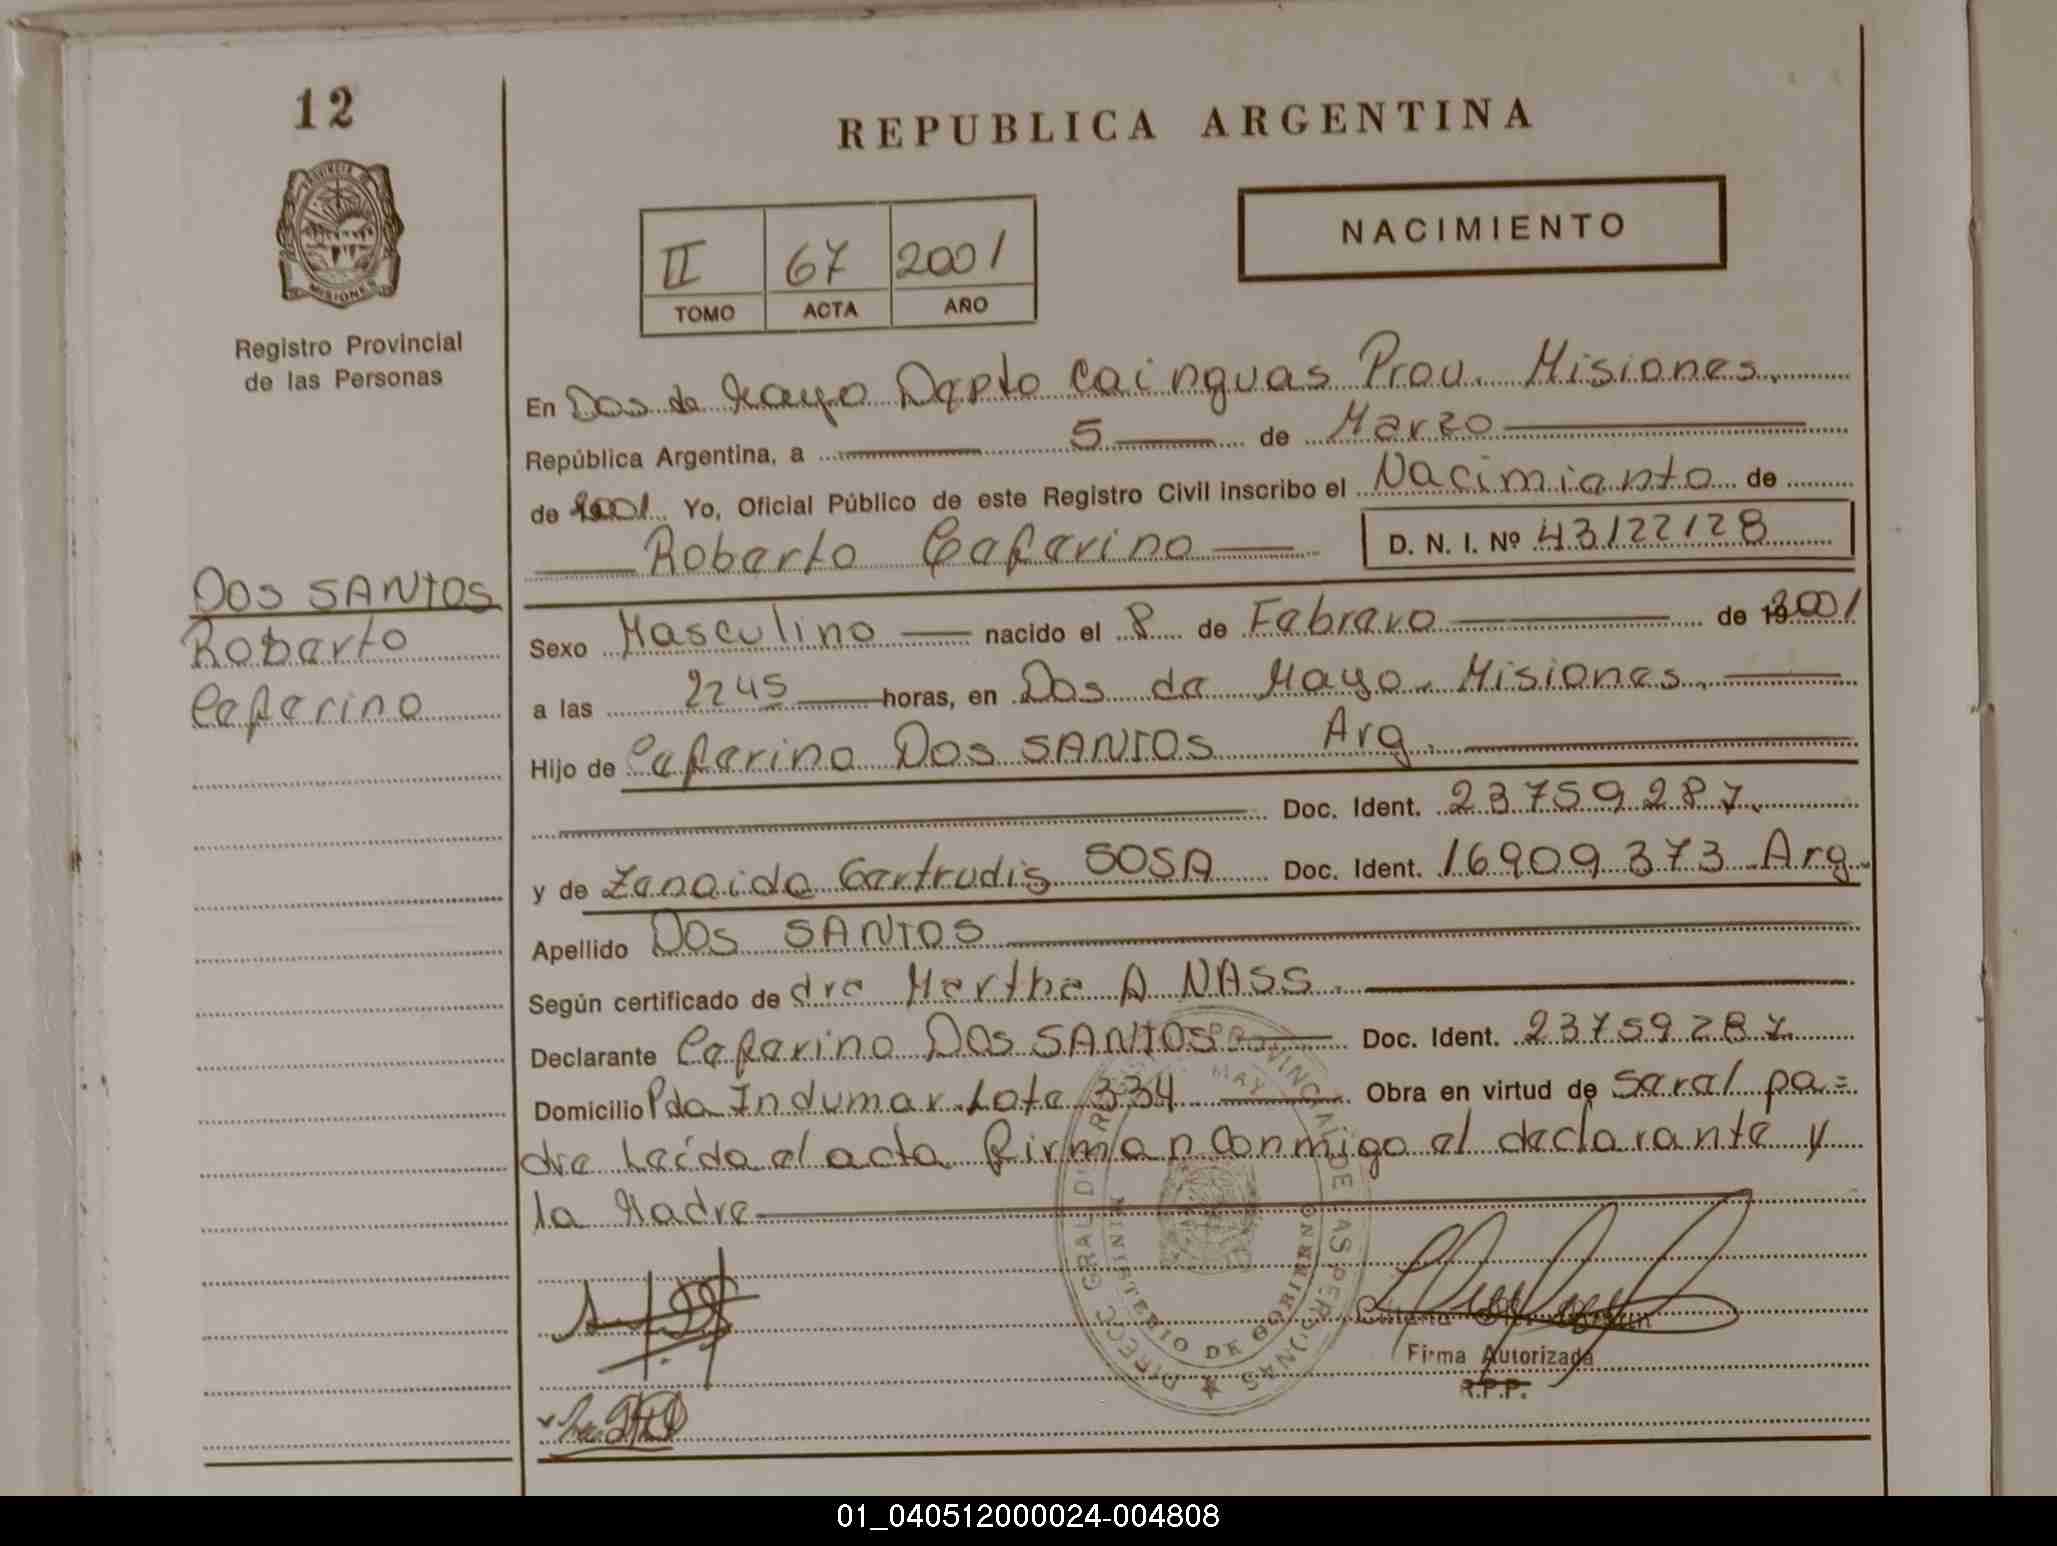 12
PROVINCIA DE
MISIONES
Registro Provincial
de las Personas
DOS SANTOS
Roberto
Ceferino
REPUBLICA ARGENTINA
II 67 2001
TOMO ACTA AÑO
NACIMIENTO
En Dos de Mayo Depto Cainguas Prov. Misiones.
República Argentina, a 5 de Marzo
de 2001 Yo, Oficial Público de este Registro Civil inscribo el Nacimiento de
Roberto Ceferino D. N. I. Nº 43122128
Sexo Masculino nacido el 8 de Febrero de 19 2001
a las 2245 horas, en Dos de Mayo. Misiones.
Hijo de Ceferino Dos SANTOS Arg.
Doc. Ident. 23759287.
y de Zenaida Gertrudis SOSA Doc. Ident. 16909373 Arg.
Apellido Dos SANTOS
Según certificado de dra Martha A NASS.
Declarante Ceferino Dos SANTOS Doc. Ident. 23759287.
Domicilio Pda Indumar Lote 334 Obra en virtud de ser el pa=
dre Leída el acta firman conmigo el declarante y
la Madre
DIRECC. GRAL. DEL REG. PROVINCIAL DE LAS PERSONAS
MINISTERIO DE GOBIERNO
Firma Autorizada
R.P.P.
01_040512000024-004808